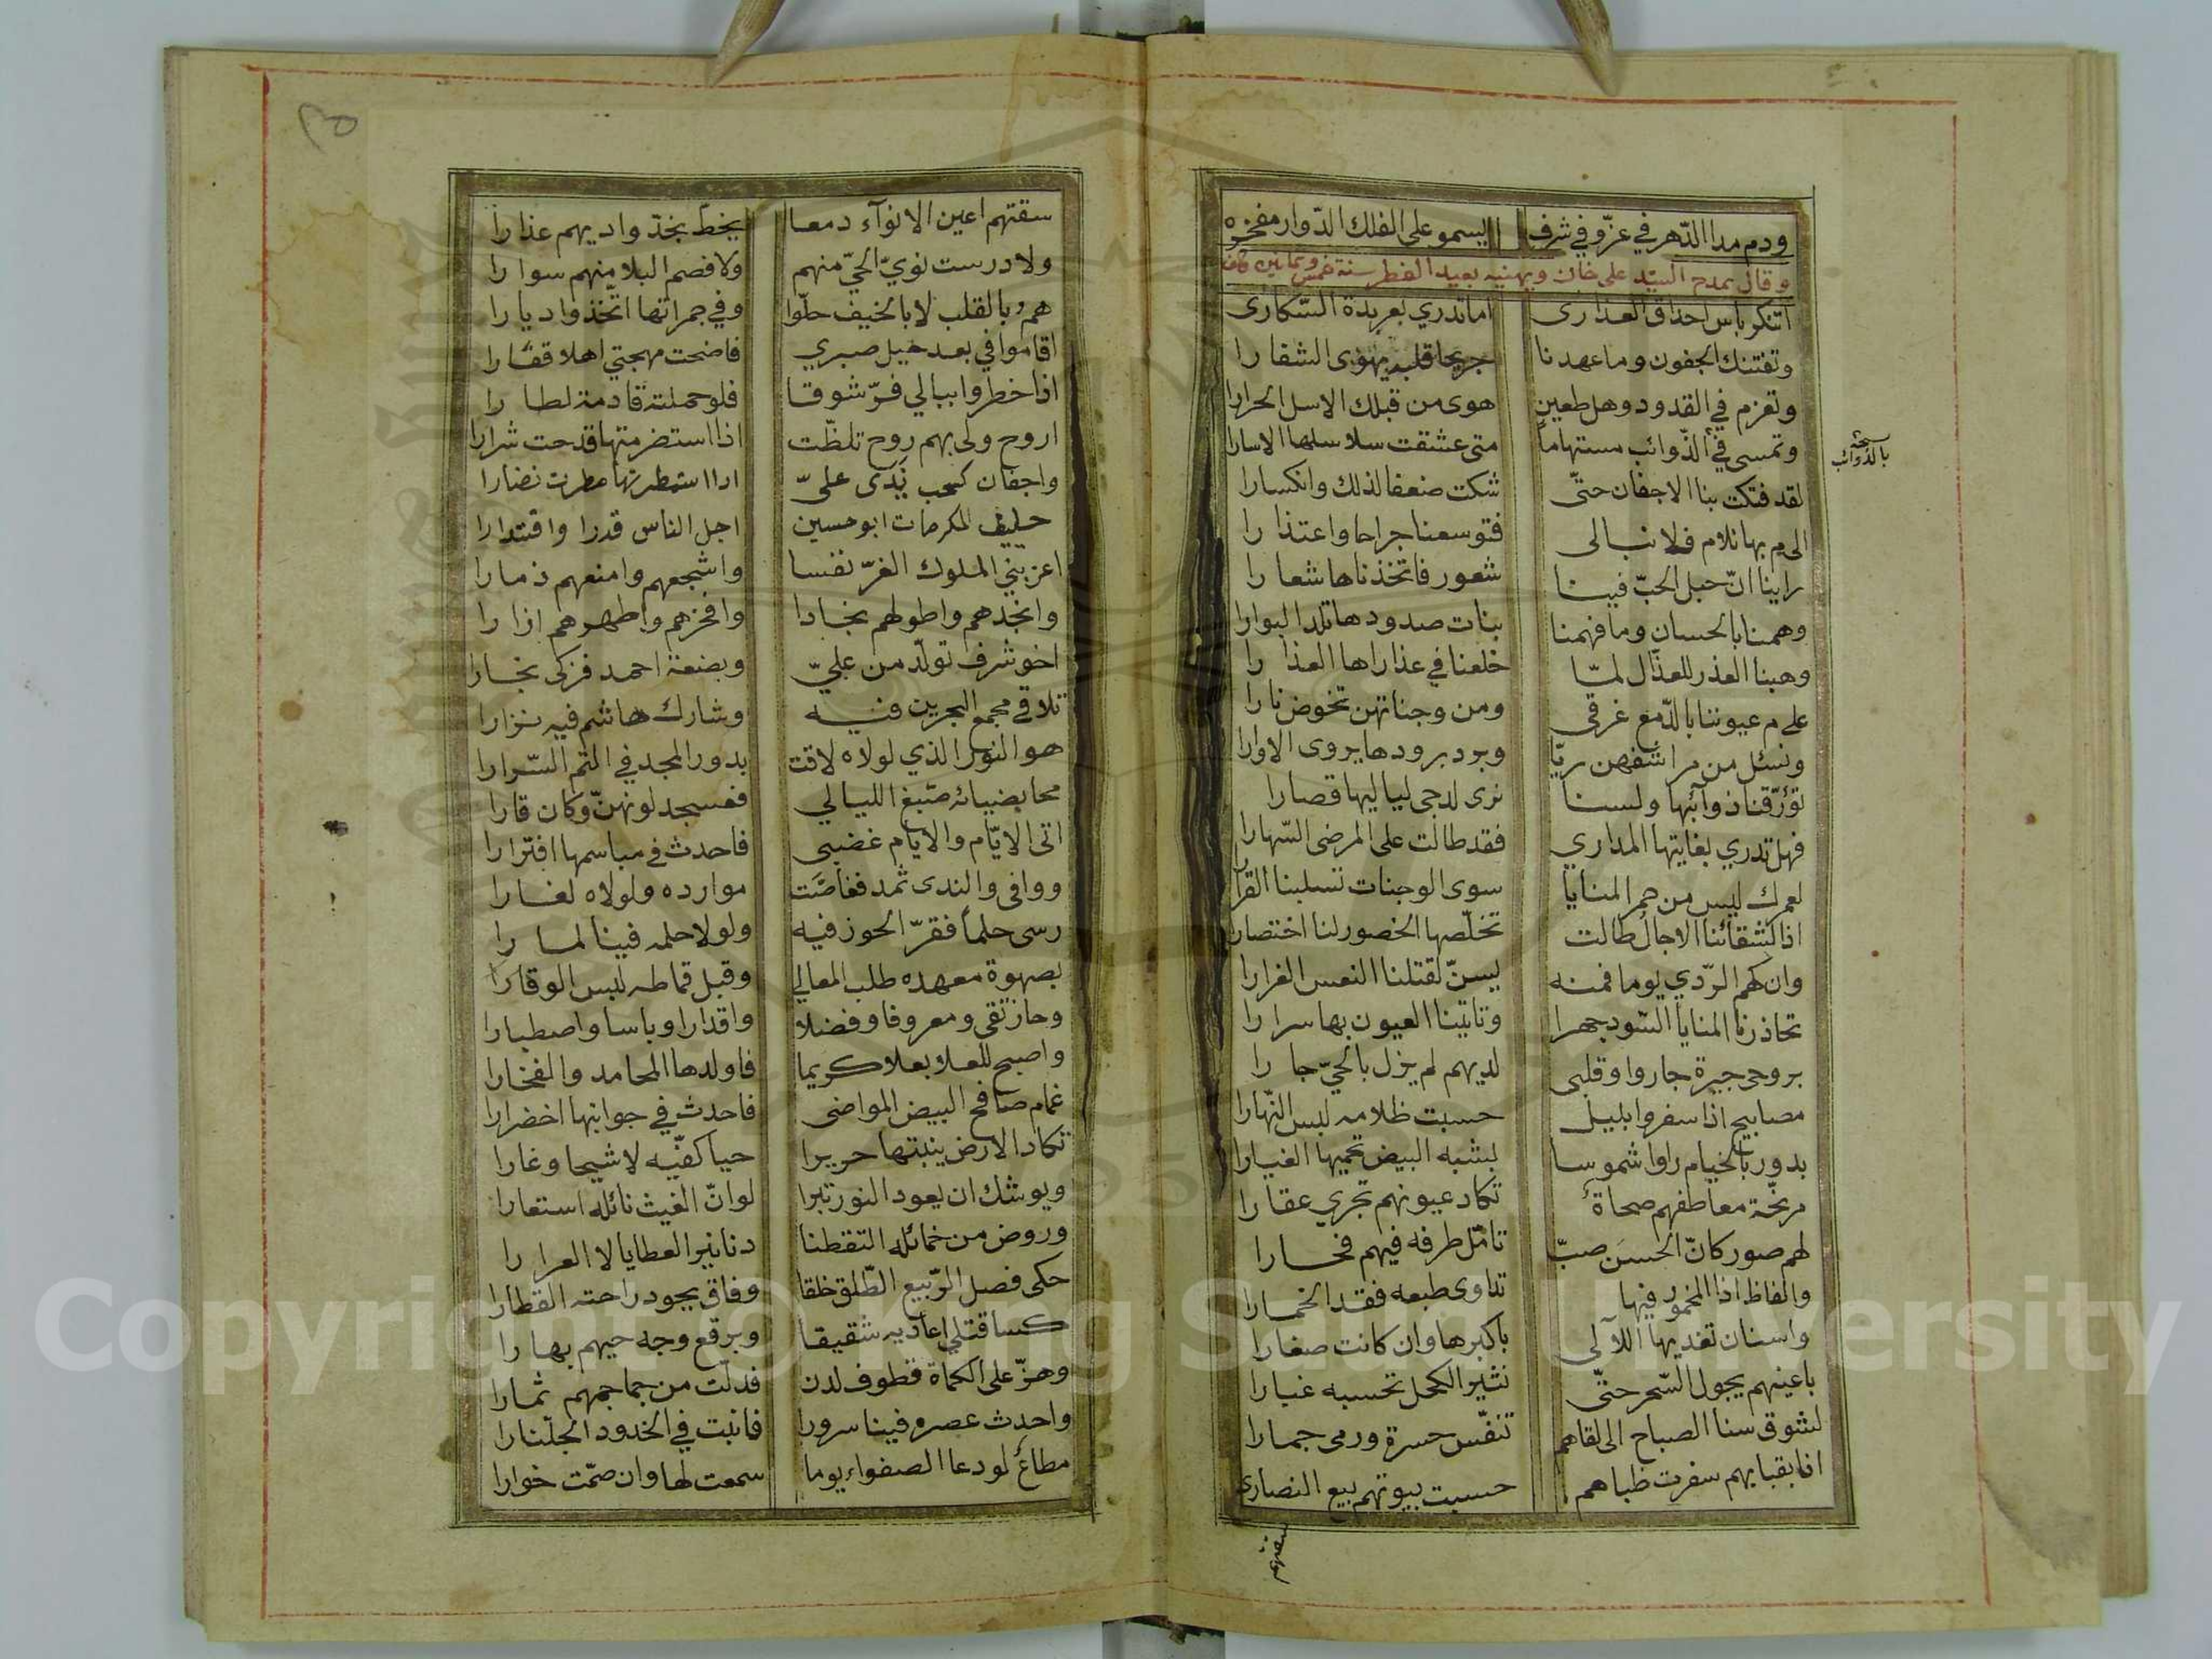 ودم مدا الدّهر في عزّ وفي شرف يسمو على الفلك الدّوار مفخره
وقال يمدح السيّد علي خان ويهنيه بعيد الفطر سنة خمس وثمانين والف
اتنكر باس احداق العذارى اما تدري بعربدة السّكارى
وتفتنك الجفون وما عهدنا جريحا قلبه يهوى الشفارا
وتغرم في القدود وهل طعين هوى من قبلك الاسل الحرارا
وتمسي في الذّوائب مستهاما متى عشقت سلاسلها الاسارا
نسخة بالذوائب
لقد فتكت بنا الاجفان حتّى شكت ضعفا لذلك وانكسارا
الى م بها نلام فلا نبالى فتوسعنا جراحا واعتذارا
راينا انّ حبل الحبّ فينا شعور فاتخذناها شعارا
وهمنا بالحسان وما فهمنا بنات صدودها تلد البوارا
وهبنا العذر للعذّال لمّا خلعنا في عذاراها العذارا
على م عيوننا بالدّمع غرقى ومن وجناتهن تخوض نارا
ونسئل من مراشفهن ريّا وبرد برودها يروى الاوارا
تؤرّقنا ذوآئبها ولسنا نرى لدجى لياليها قصارا
فهل تدري بغايتها المداري فقد طالت على المرضى السّهارا
لعمرك ليس من حمر المنايا سوى الوجنات تسلبنا القرارا
اذا لشقائنا الاجال طالت تخلّصها الخصور لنا اختصارا
وان كهم الرّدي يوما فمنه يسنّ لقتلنا النعس الغرارا
تحاذرنا المنايا السّود جهرا وتاتينا العيون بها سرارا
بروحى جيرة جاروا وقلبى لديهم لم يزل بالحيّ جارا
مصابيح اذا سفروا بليل حسبت ظلامه لبس النّهارا
بدور بالخيام راوا شموسا لبشبه البيض تحميها الغيارا
مرنّحة معاطفهم صحاة تكاد عيونهم تجري عقارا
لهم صور كانّ الحسن صبّ تامّل طرفه فيهم فحارا
والفاظ اذا المخمور فيها تداوى طبعه فقد الخمارا
واسنان تفديها اللآلى باكبرها وان كانت صغارا
باعينهم يجول السّحر حتّى نثير الكحل تحسبه غبارا
لشوق سنا الصباح الى لقاهم تنفّس حسرة ورمى جمارا
اذا بقبابهم سفرت ظباهم حسبت بيوتهم بيع النصارى
سقتهم
٢٥
سقتهم اعين الانوآء دمعا يخطّ بخدّ واديهم عذارا
ولا درست نويّ الحيّ منهم ولا فصم البلا منهم سوارا
هم بالقلب لا بالخيف حلّوا وفي جمراتها اتّخذوا ديارا
اقاموا في بعد خيل صبري فاضحت مهجتي اهلا قفارا
اذا خطروا ببالي فرّ شوقا فلو حملته قادمة لطارا
اروح ولى بهم روح تلظّت اذا استضرمتها قدحت شرارا
واجفان كسحب نَدى علىّ اذا استمطرتها مطرت نضارا
حليف المكرمات ابو حسين اجل الناس قدرا واقتدارا
اعز بني الملوك الغرّ نفسا واشجعهم وامنعهم ذمارا
وانجدهم واطولهم نجادا وافخرهم واطهرهم ازارا
اخو شرف تولّد من عليّ وبضعة احمد فزكى نجارا
تلاقي مجمع البحرين فيه وشارك هاشم فيه نزارا
هو النور الذي لولاه لاقت بدور المجد في التم السّرارا
محا بضيائه صبغ الليالي فعسجد لونهنّ وكان قارا
اتى الايّام والايام غضبى فاحدث في مباسمها افترارا
ووافى والندى ثمد ففاضَت موارده ولولاه لغارا
رسى حلماً فقرّ الحوز فيه ولولا حلمه فينا لمارا
بصهوة معهده طلب المعالي وقبل قماطه لبس الوقارا
وحاز تقى ومعروفا وفضلا واقدارا وباسا واصطبارا
واصبح للعلا بعلا كريما فاولدها المحامد والفخارا
غمام صافح البيض المواضى فاحدث في جوانبها اخضرارا
تكاد الارض ينبتها حريرا حيا كفّيه لا شيحا وغارا
ويوشك ان يعود النور تبرا لو انّ الغيث نائله استعارا
وروض من خمائله التقطنا دنانير العطايا لا العرارا
حكى فصل الرّبيع الطّلق خلقا وفاق بجود راحته القطارا
كسا قتلى اعاديه شقيقا وبرقع وجه حيهم بهارا
وهزّ على الكماة قطوف لدن فدلّت من جماجمهم ثمارا
واحدث عصره فينا سرورا فانبت في الخدود الجلّنارا
مطاع لو دعا الصفواء يوما سمعت لها وان صمّت خوارا
Copyright © King Saud University